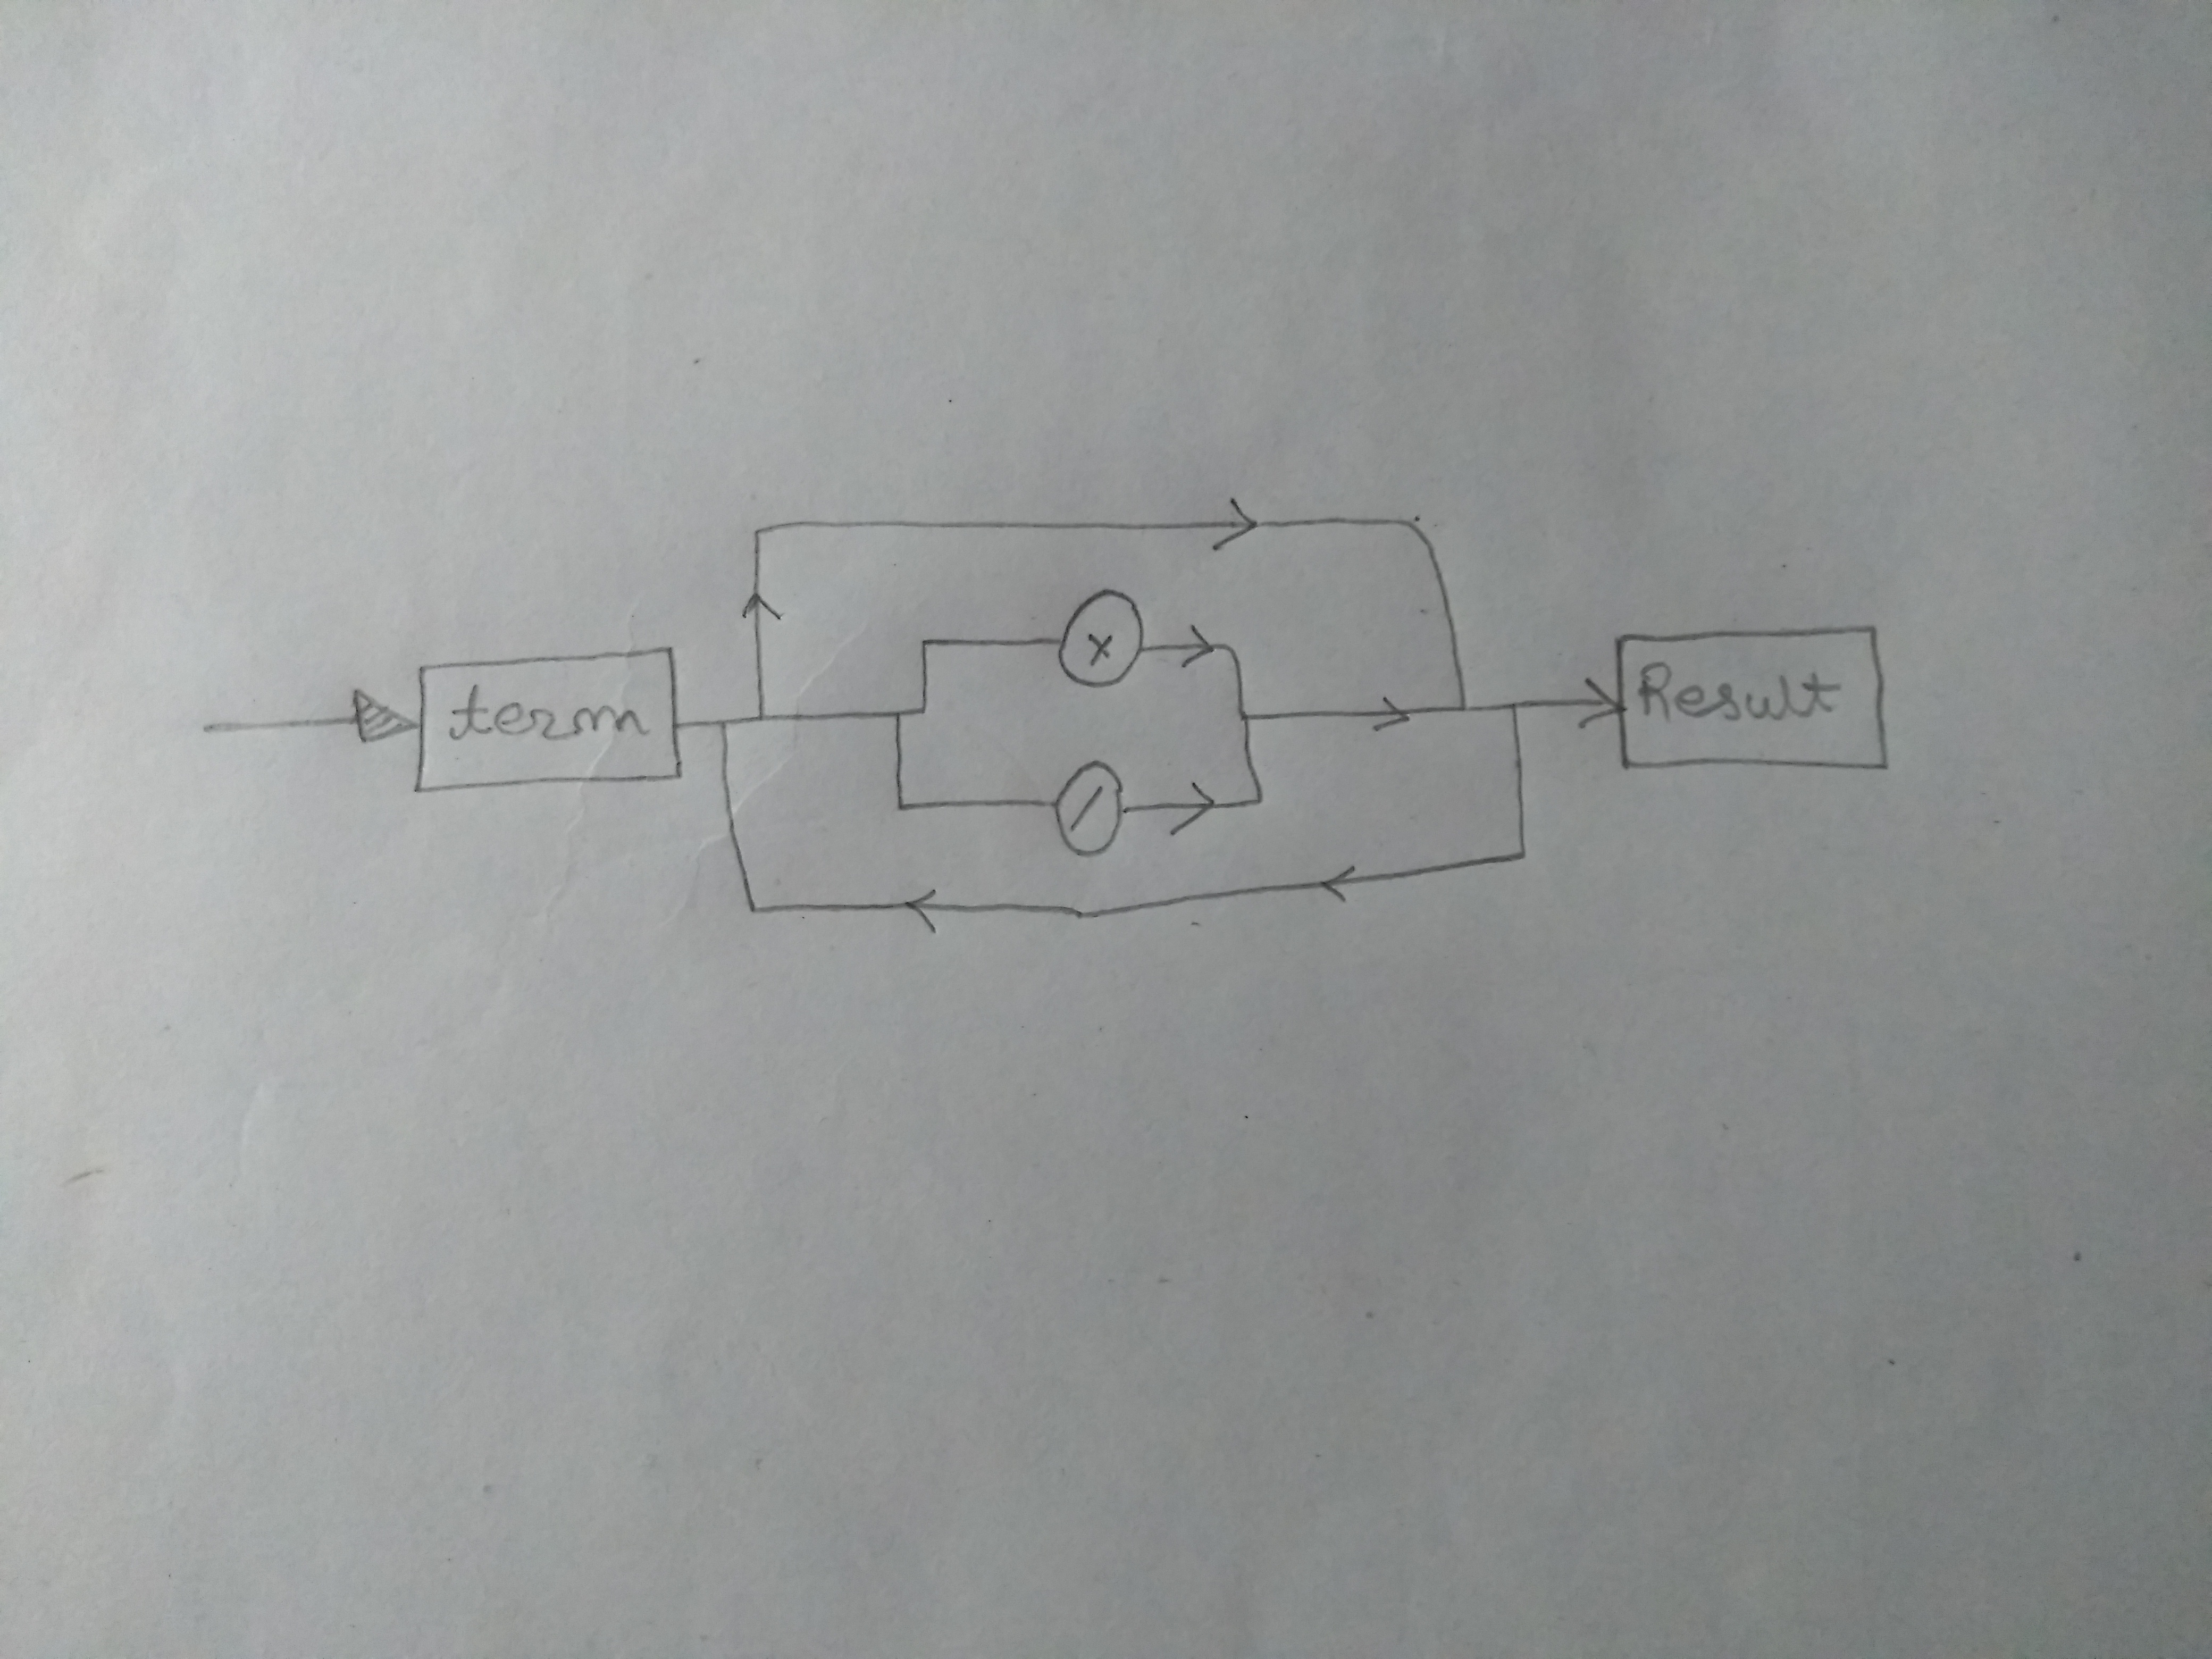 term
x
/
Result